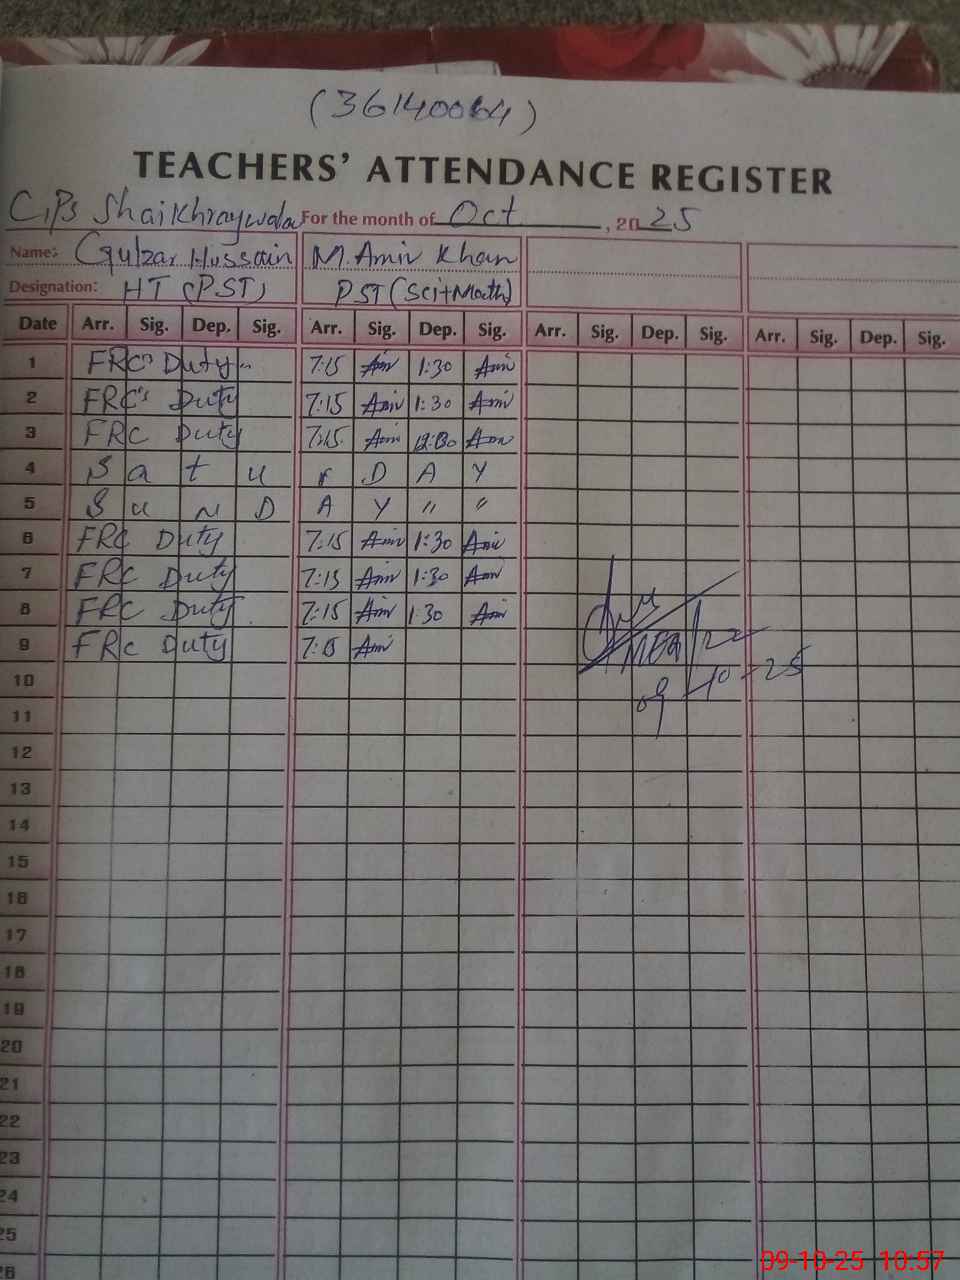 (36140064)
TEACHERS' ATTENDANCE REGISTER
C,Ps Shaikhraywala For the month of Oct, 2025
Name: Gulzar Hussain M. Amir Khan
Designation: HT (PST) PST (Sci+Math)
Date Arr. Sig. Dep. Sig. Arr. Sig. Dep. Sig. Arr. Sig. Dep. Sig. Arr. Sig. Dep. Sig.
1 FRC's Duty 7:15 Amir 1:30 Amir
2 FRC's Duty 7:15 Amir 1:30 Amir
3 FRC Duty 7:15 Amir Amir
4 S a t u r D A Y
5 S u N D A Y " "
6 FRC Duty 7:15 Amir 1:30 Amir
7 FRC Duty 7:15 Amir 1:30 Amir
8 FRC Duty 7:15 Amir 1:30 Amir
9 FRC Duty 7:15 Amir
MEA
10 09-10-25
11
12
13
14
15
16
17
18
19
20
21
22
23
24
25
26
09-10-25 10:57